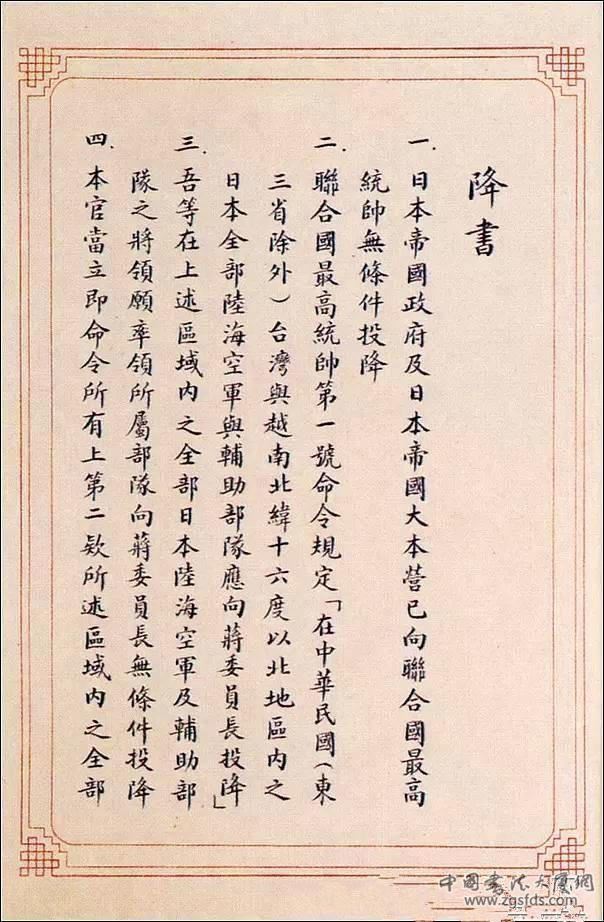 降書
一.日本帝國政府及日本帝國大本營已向聯合國最高
統帥無條件投降
二.聯合國最高統帥第一號命令規定「在中華民國(東
三省除外)台灣與越南北緯十六度以北地區內之
日本全部陸海空軍與輔助部隊應向蔣委員長投降」
三.吾等在上述區域內之全部日本陸海空軍及輔助部
隊之將領願率領所屬部隊向蔣委員長無條件投降
四.本官當立即命令所有上第二欵所述區域內之全部
中國書法大廈網
www.zgsfds.com